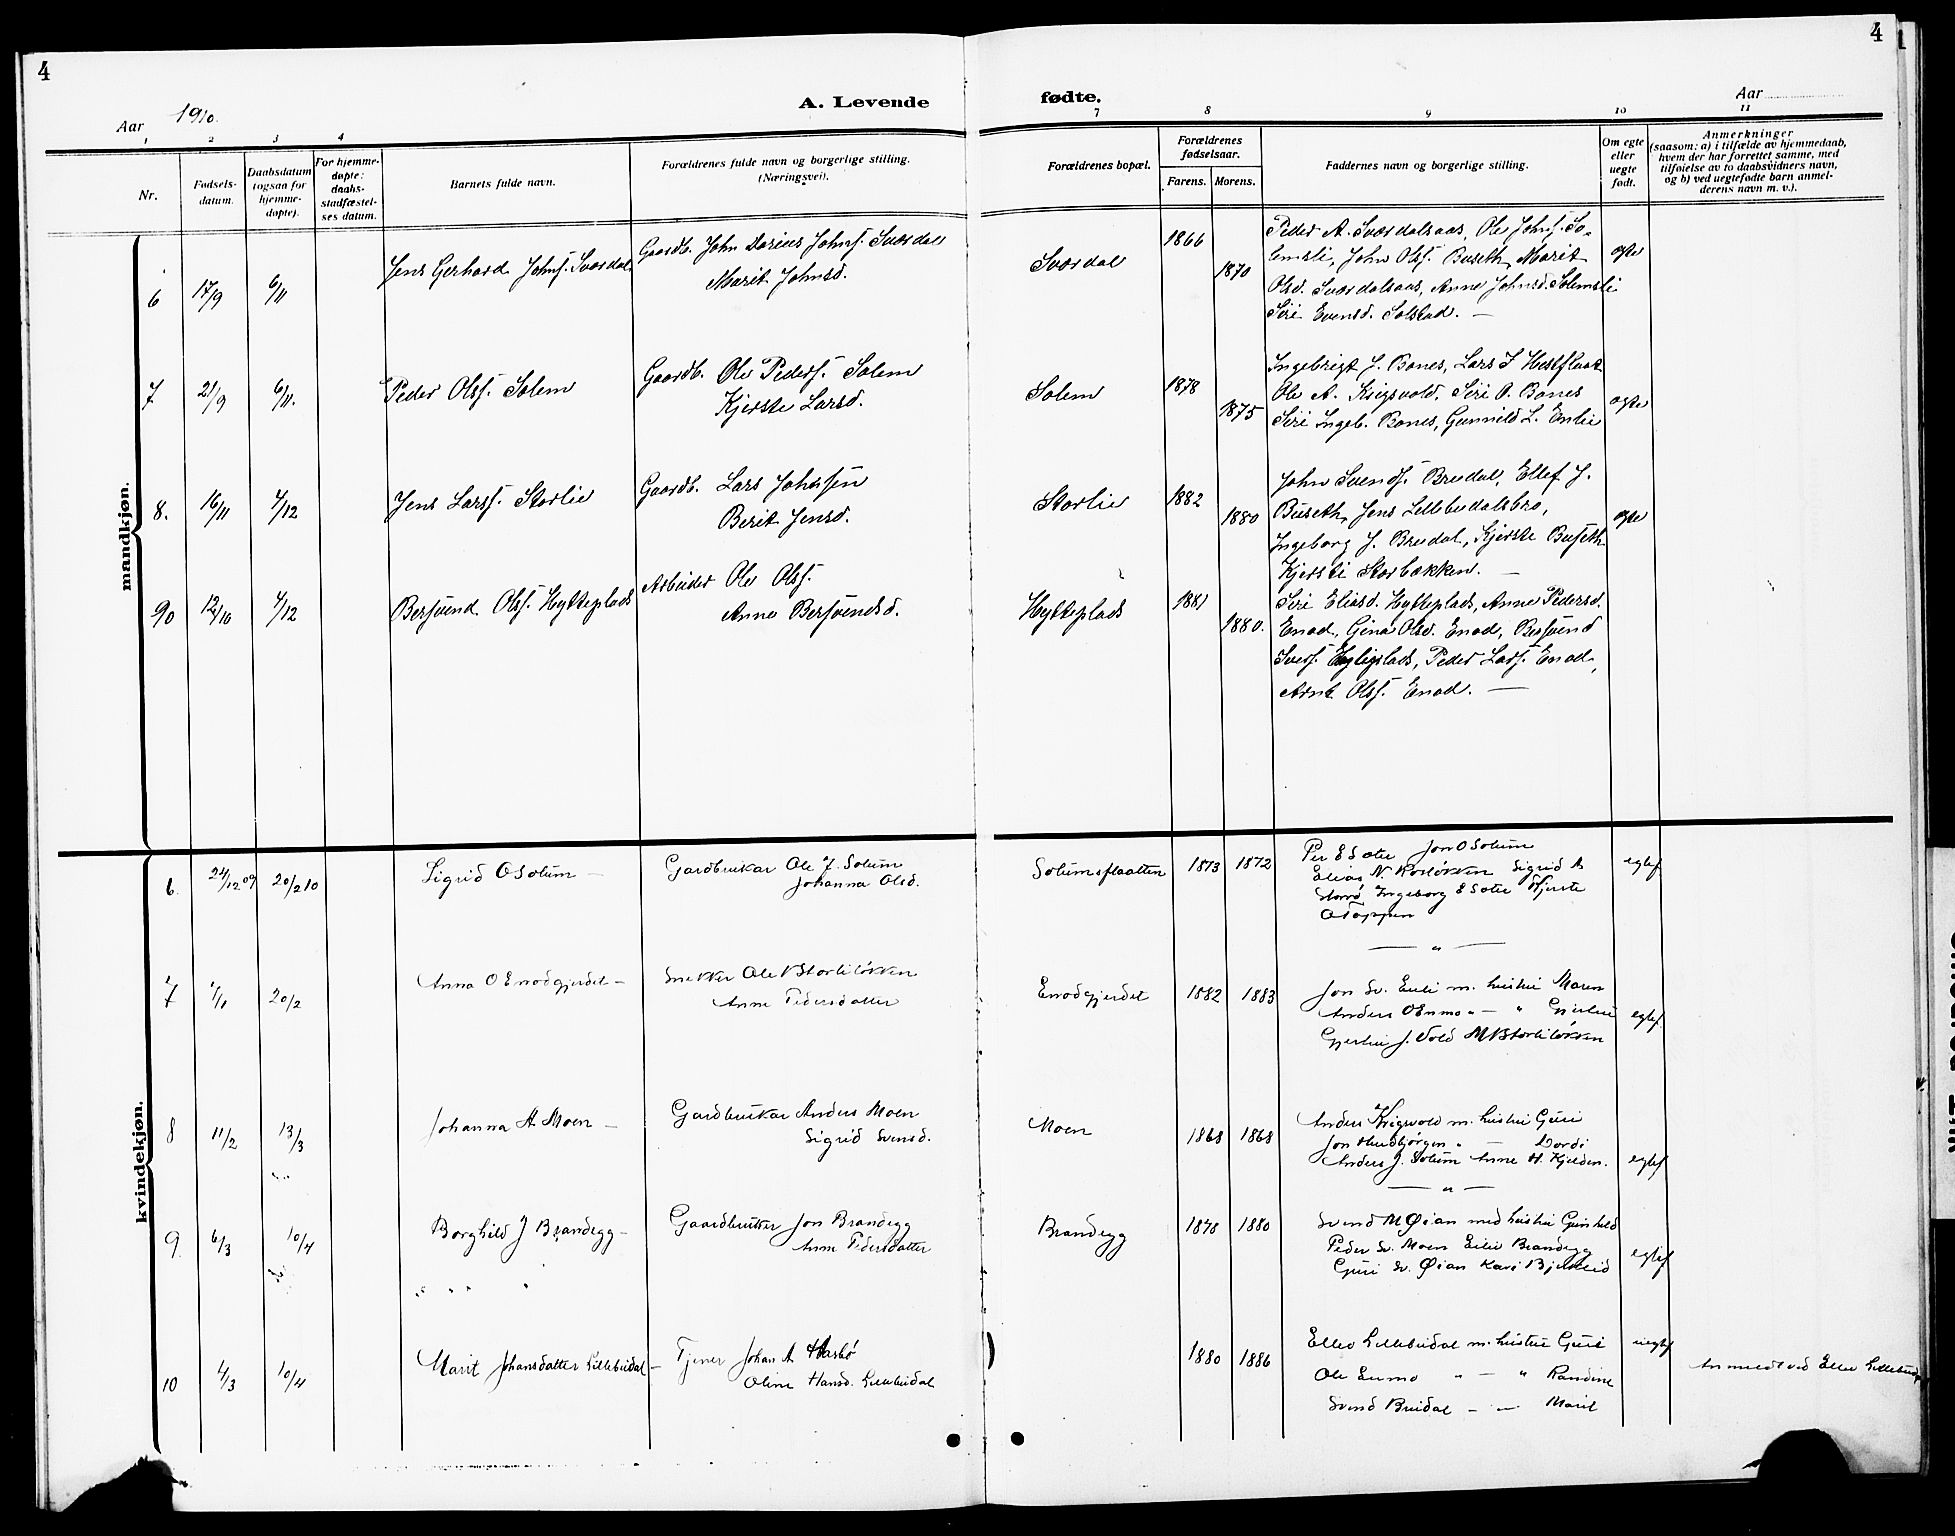 4
4
Aar 1910.
A. Levende fødte.
Aar
1 2 3 4 7 8 9 10 11
Nr.
Fødsels-
datum.
Daabsdatum
(ogsaa for
hjemme-
døpte).
For hjemme-
døpte:
daabs-
stadfæstel-
ses datum.
Barnets fulde navn.
Forældrenes fulde navn og borgerlige stilling.
(Næringsvei).
Forældrenes bopæl.
Forældrenes
fødselsaar.
Farens. Morens.
Faddernes navn og borgerlige stilling.
Om egte
eller
uegte
født.
Anmerkninger
(saasom: a) i tilfælde av hjemmedaab,
hvem der har forrettet samme, med
tilføielse av to daabsvidners navn,
og b) ved uegtefødte barn anmel-
derens navn m. v.).
mandkjøn.
6 17/9 6/11 Jens Gerhard Johnf. Sværdal
Gaardb. John Dorius Johnf. Sværdal
Marit Johnsd.
Sværdal 1866 1870
Peder A. Sværdalsaas, Ole Johnf. So-
lemsli, John Olsf. Buseth, Marit
Olsd. Sværdalsaas, Anne Johnsd. Solemsli
Siri Evensd. Solstad. —
egte
7 21/9 6/11. Peder Olsf. Solem
Gaardb. Ole Pedersf. Solem
Kjerste Larsd.
Solem 1878 1875
Ingebrigt J. Bones, Lars J Hestflaat
Ole A. Krigsvold, Siri O. Bones
Siri Ingeb. Bones, Gunnild L. Enlie
egte
8. 16/11 4/12 Jens Larsf. Storlie
Gaardb. Lars Johnsen
Berit Jensd.
Storlie 1882 1880
John Svendf. Bredal, Ellef J.
Buseth, Jens Lillebudalsbro,
Ingeborg J. Bredal, Kjerste Buseth
Kjersti Storbækken. —
egte
9 12/10 4/12 Bersvend Olsf. Hytteplads
Arbeider Ole Olsf.
Anne Bersvendsd.
Hytteplads 1881 1880.
Siri Eliasd. Hytteplads, Anne Pedersd.
Enod, Gina Olsd. Enod, Bersvend
Iversf. Hytteplads, Peder Larsf. Enod,
Arnt Olsf. Enod. —
kvindekjøn.
6. 24/12 09 20/2 10 Sigrid O Solum —
Gardbrukar Ole J. Solum
Johanna Olsd.
Solumsflaatten 1873 1872
Per E Sæter Jon O Solum
Elias N. Rosløkken Sigrid A
Storrø Ingeborg E Sæter Kjerste
O Tøppen
— " —
egtef
7 1/1 20/2 Anna O Enodgjerdet —
Snekker Ole N Storliløkken
Anne Pedersdatter
Enodgjerdet 1882 1883
Jon Sv. Enli m. hustru Maren
Anders O Enmo " — " Gjertrue
Gjertru J. Vold M N Storliløkken
egtef
8 11/2 13/3 Johanna A. Moen —
Gardbrukar Anders Moen
Sigrid Svensd.
Moen 1868 1868
Anders Krigsvold m. hustru Guri
Jon " — Dordi
Anders J. Solum Anne H. Kjelden.
— " —
egtef
9 6/3 10/4 Borghild J Brandegg —
Gaardbruker Jon Brandegg
Anne Pedersdatter
Brandegg 1878 1880
Svend M Øian med hustru Gunhild
Peder Sv. Moen Eilie Brandegg
Guri Sv. Øian Kari
egtef
10 4/3 10/4 Marit Johansdatter Lillebudal —
Tjener Johan A. Harbo
Oline Hansd. Lillebudal
1880 1886
Ellev Lillebudal m. hustru Guri
Ole Enmo " — " Randine
Svend Budal — " — Marit
uegtef
Anmeldt ved Ellev Lillebudal